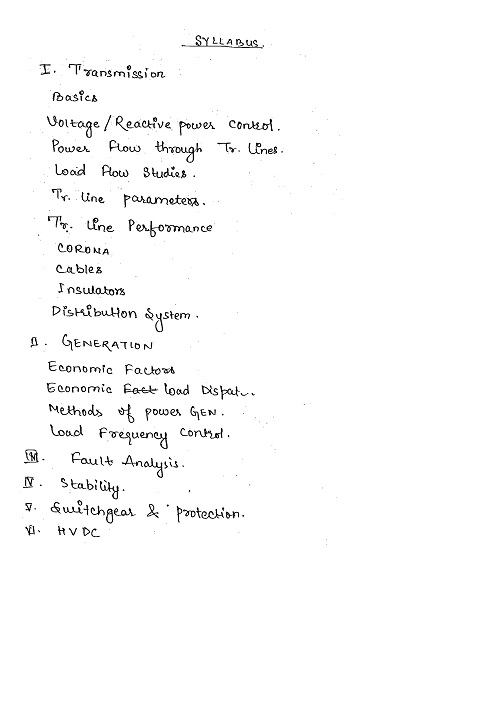 SYLLABUS.
I. Transmission
Basics
Voltage/Reactive power control.
Power flow through Tr. Lines.
Load flow Studies.
Tr. line parameters.
Tr. line Performance
CORONA
Cables
Insulators
Distribution System.
II. GENERATION
Economic Factors
Economic Fact load Dispat..
Methods of power GEN.
Load Frequency control.
III. Fault Analysis.
IV. Stability.
V. Switchgear & protection.
VI. HVDC